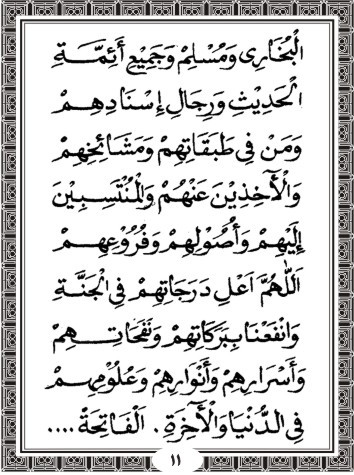 الْبُخَارِى وَمُسْلِمْ وَجَمِيْعِ أَئِمَّـــةِ
الْحَدِيْثِ وَرِجَالِ إِسْنَادِهِـــمْ
وَمَنْ فِى طَبَقَاتِهِمْ وَمَشَائِخِهِمْ
وَالْآخِذِيْنَ عَنْهُمْ وَالْمُنْتَسِـبِيْنَ
إِلَيْهِمْ وَأُصُوْلِهِمْ وَفُرُوْعِهِـــمْ
اَللّٰهُمَّ اَعْلِ دَرَجَاتِهِمْ فِى الْجَنَّـةِ
وَانْفَعْنَا بِبَرَكَاتِهِمْ وَنَفَحَاتِـــهِمْ
وَأَسْرَارِهِمْ وَأَنْوَارِهِمْ وَعُلُوْمِهِـمْ
فِى الدُّنْيَا وَالْآخِرَةِ . اَلْفَاتِحَةْ ....
١١